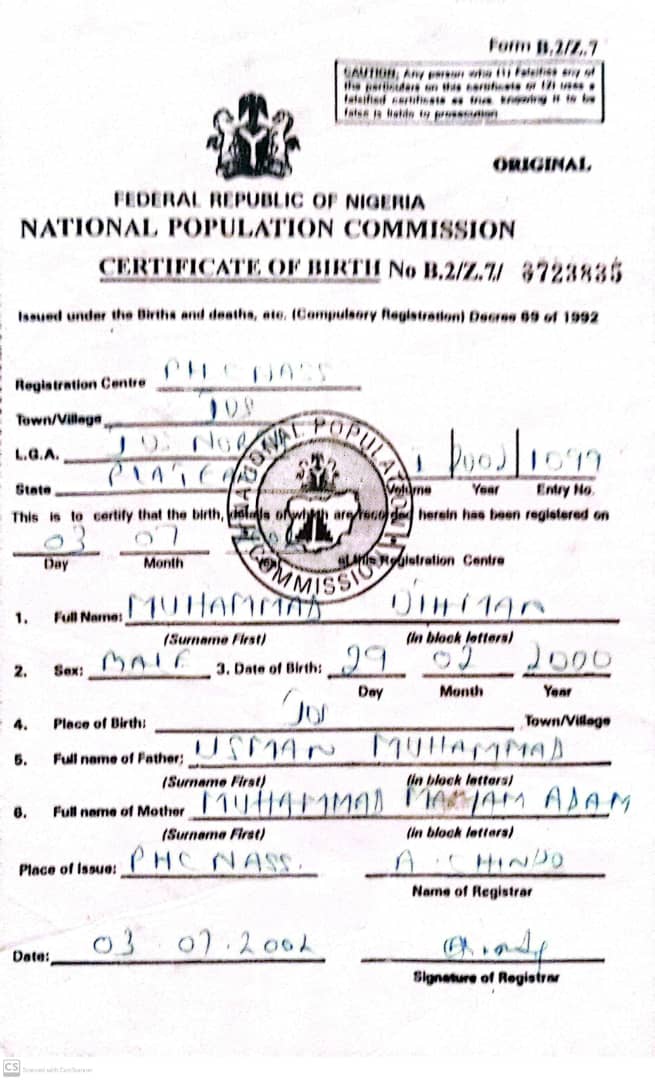 Form B.2/Z.7
CAUTION; Any person who (1) Falsifies any of
the particulars on this certificate or (2) uses a
falsified certificate as true, knowing it to be
false is liable to prosecution
ORIGINAL
FEDERAL REPUBLIC OF NIGERIA
NATIONAL POPULATION COMMISSION
CERTIFICATE OF BIRTH No B.2/Z.7/ 3723835
Issued under the Births and deaths, etc. (Compulsory Registration) Decree 69 of 1992
Registration Centre PHC NASS
Town/Village JOS
L.G.A. JOS NOR
State PLATEA
1 2002 1099
Volume Year Entry No.
NATIONAL POPULATION COMMISSION
This is to certify that the birth, details of which are recorded herein has been registered on
03 07
Day Month Year at this Registration Centre
1. Full Name: MUHAMMAD
(Surname First) (in block letters)
2. Sex: MALE 3. Date of Birth: 29 02 2000
Day Month Year
4. Place of Birth: Jos Town/Village
5. Full name of Father: USMAN MUHAMMAD
(Surname First) (in block letters)
6. Full name of Mother MUHAMMAD MARYAM ADAM
(Surname First) (in block letters)
Place of Issue: PHC NASS. A. CHINDO
Name of Registrar
Date: 03.07.2002
Signature of Registrar
CS Scanned with CamScanner